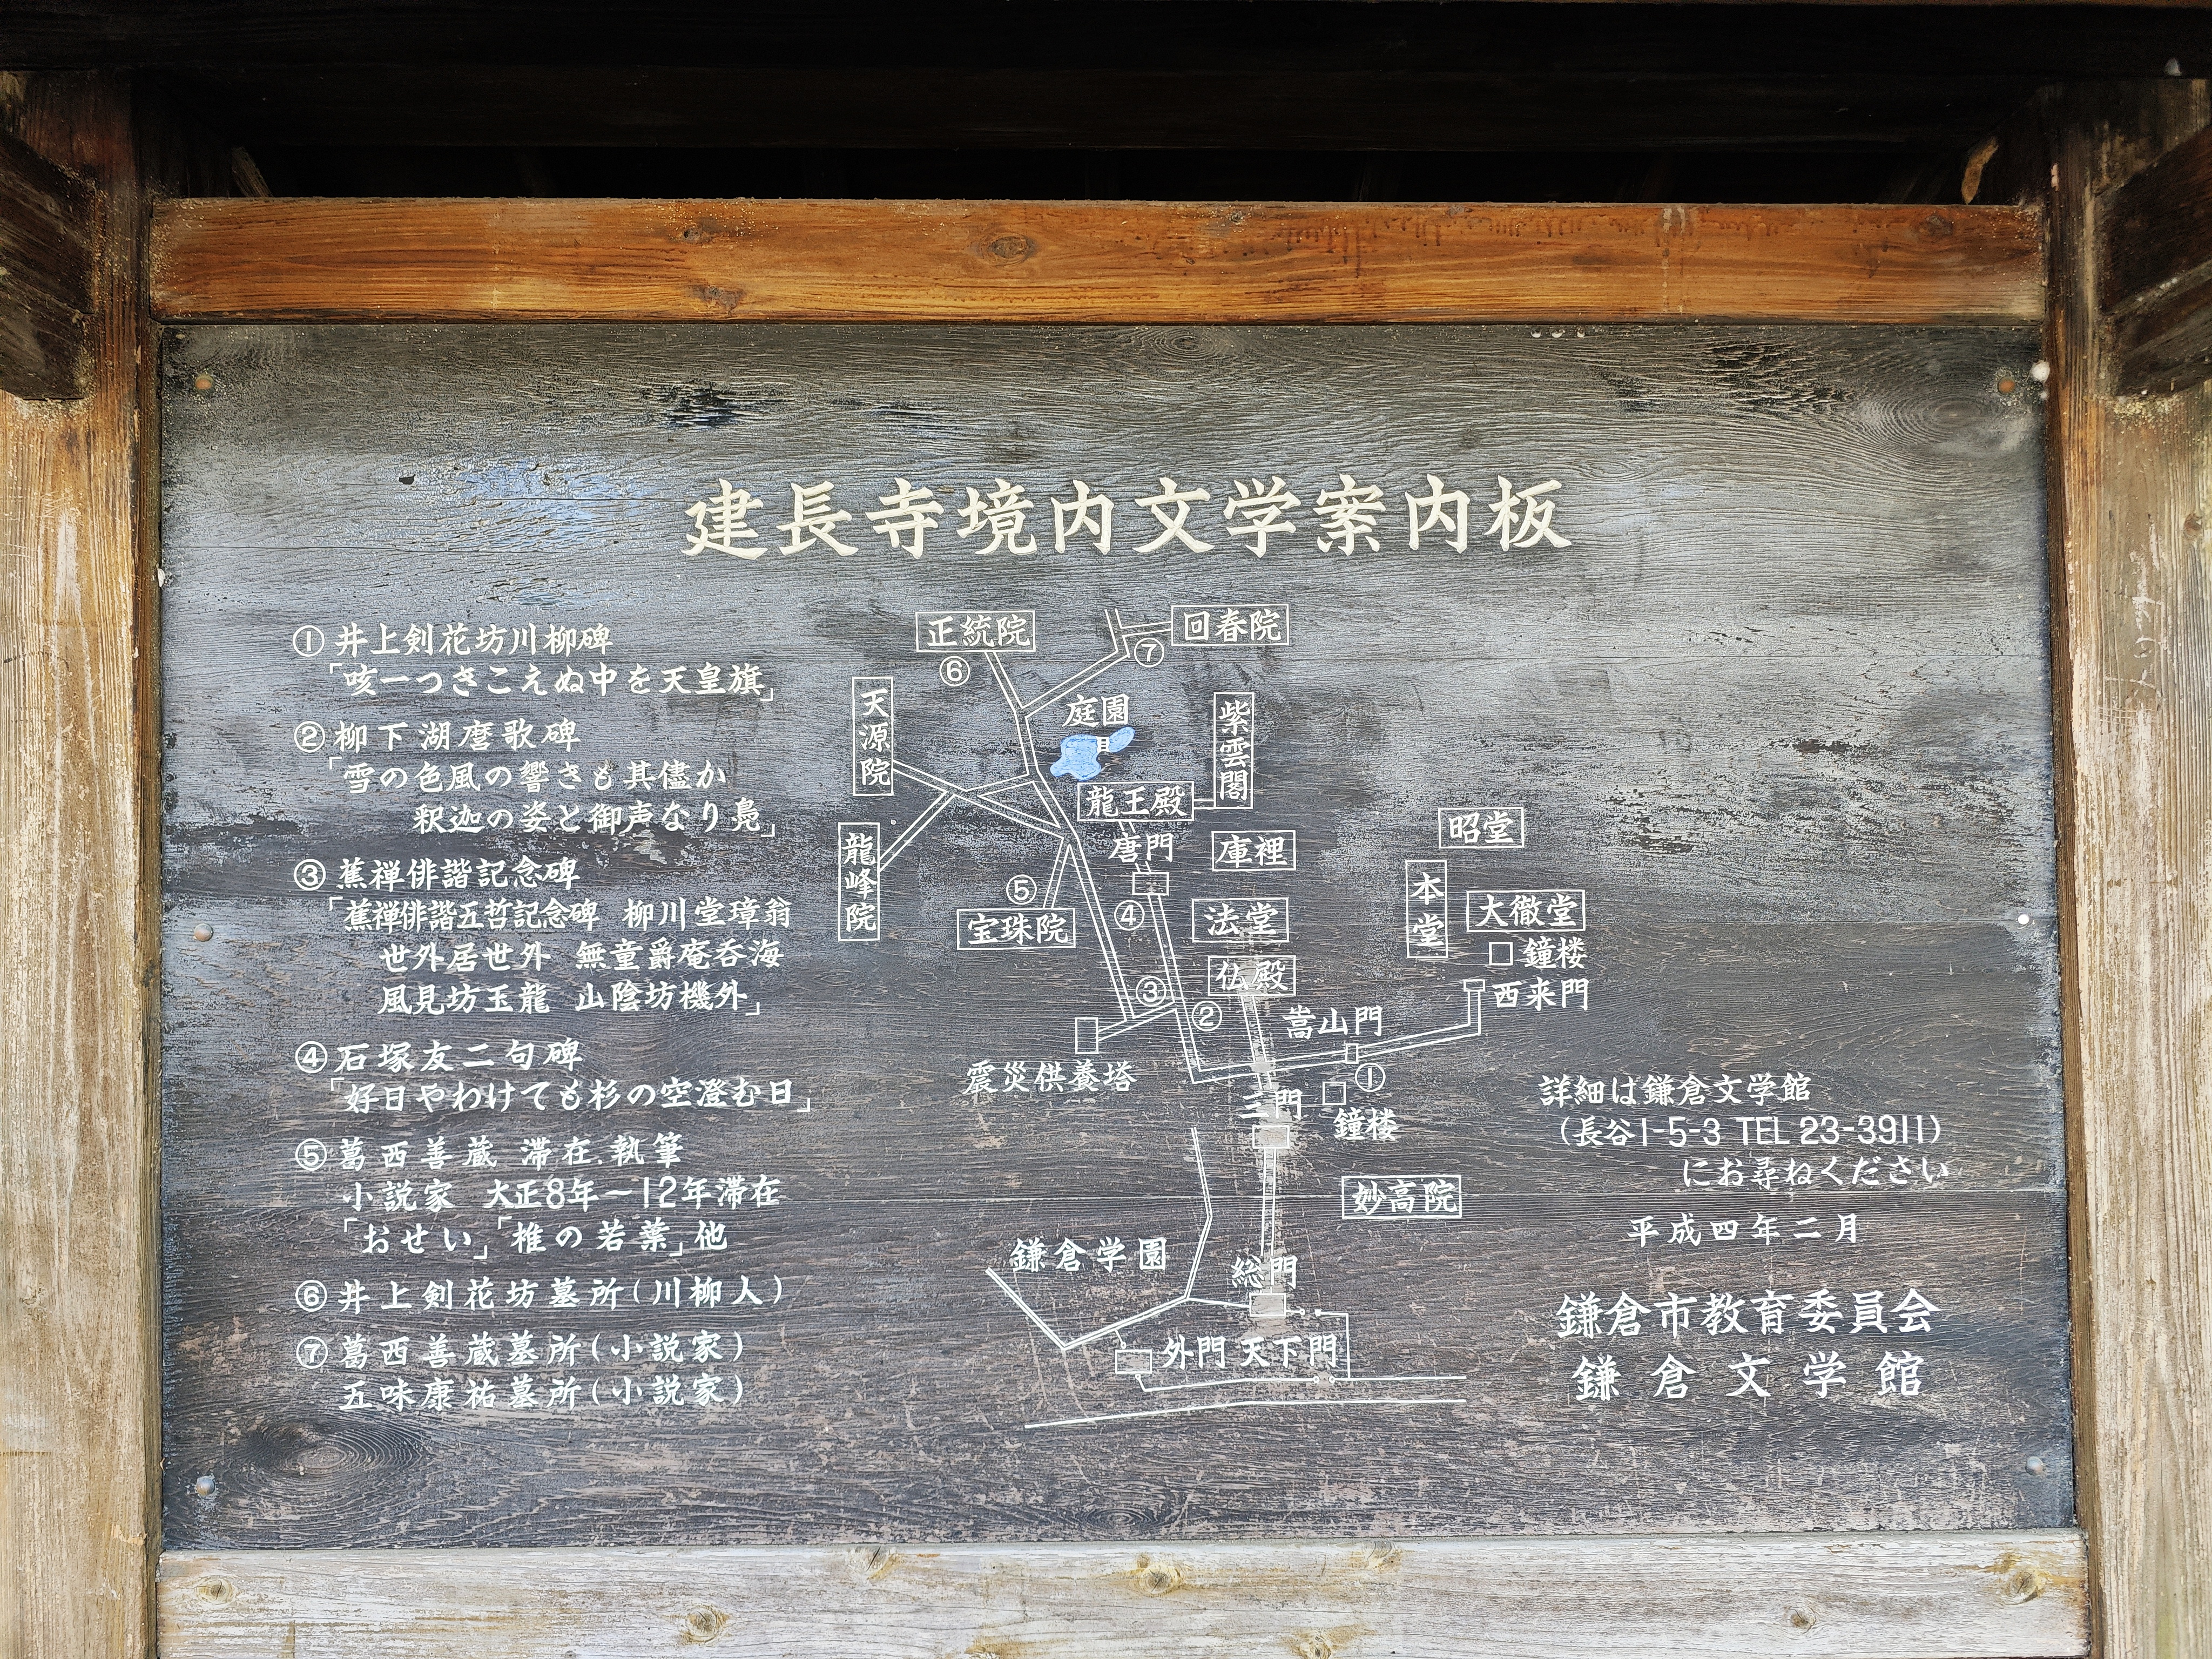 建長寺境内文学案内板
① 井上剣花坊川柳碑
「咳一つきこえぬ中を天皇旗」
② 柳下湖麿歌碑
「雪の色風の響きも其儘か
釈迦の姿と御声なり鳧」
③ 蕉禅俳諧記念碑
「蕉禅俳諧五哲記念碑 柳川堂璋翁
世外居世外 無童爵庵呑海
風見坊玉龍 山陰坊機外」
④ 石塚友二句碑
「好日やわけても杉の空澄む日」
⑤ 葛西善蔵 滞在、執筆
小説家 大正8年～12年滞在
「おせい」「椎の若葉」他
⑥ 井上剣花坊墓所(川柳人)
⑦ 葛西善蔵墓所(小説家)
五味康祐墓所(小説家)
正統院
⑥
回春院
⑦
天源院
庭園
紫雲閣
龍王殿
龍峰院
唐門
庫裡
昭堂
⑤
宝珠院
④
法堂
本堂
大徹堂
鐘楼
仏殿
西来門
③
②
嵩山門
震災供養塔
①
三門
鐘楼
妙高院
鎌倉学園
総門
外門
天下門
詳細は鎌倉文学館
(長谷1-5-3 TEL 23-3911)
にお尋ねください
平成四年二月
鎌倉市教育委員会
鎌倉文学館